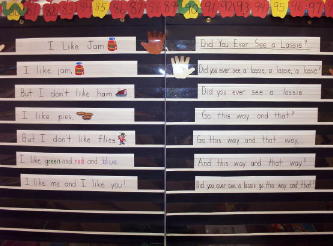 85 89 91 92 93 94 95 96 97
I Like Jam
I like jam,
But I don't like ham
I like pies,
But I don't like flies
I like green and red and blue.
I like me and I like you!
Did You Ever See a Lassie?
Did you ever see a lassie, a lassie, a lassie?
Did you ever see a lassie
Go this way and that?
Go this way and that way,
And this way and that way?
Did you ever see a lassie go this way and that?